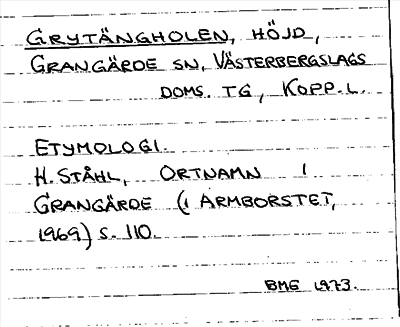 GRYTÄNGHOLEN, HÖJD,
GRANGÄRDE SN, VÄSTERBERGSLAGS
DOMS. TG, KOPP. L.
ETYMOLOGI.
H. STÅHL, ORTNAMN I
GRANGÄRDE (I ARMBORSTET,
1969) S. 110.
BMG 1973.